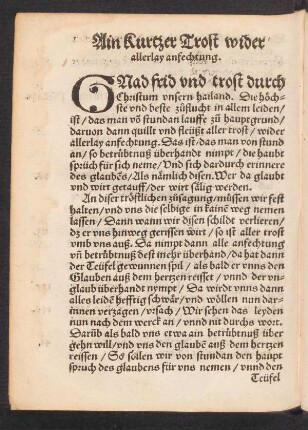 Ain Kurtzer Trost wider
allerlay anfechtung.
GNad frid vnd trost durch
Christum vnsern hailand. Die höch-
ste vnd beste zůflucht in allem leiden/
ist/ das man võ stundan lauffe zů hauptgrund/
daruon dann quillt vnd fleüßt aller trost/ wider
allerlay anfechtung. Das ist/ das man von stund
an/ so betrübtnuß überhandt nimpt/ die haubt
sprüch für sich neme/ Vnd sich dardurch erinnere
des glaubẽs/ Als nämlich disen. Wer da glaubt
vnd wirt getaufft/ der wirt sälig werden.
An diser tröstlichen zůsagung/ müssen wir fest
halten/ vnd vns die selbige in kainẽ weg nemen
lassen/ Dann wann wir disen schilde verlieren/
dz er vns hinweg gerissen wirt/ so ist aller trost
vmb vns auß. Da nimpt dann alle anfechtung
vñ betrübtnuß dest mehr überhand/ da hat dann
der Teüfel gewunnen spil/ als bald er vnns den
Glauben auß dem hertzen reisset/ vnnd der vn-
glaub überhandt nympt/ Da wirdt vnns dann
alles leidẽ hefftig schwär/ vnd wöllen nun dar-
innen verzagen/ vrsach/ Wir sehen das leyden
nun nach dem werck an/ vnnd nit durchs wort.
Darüb als bald vns etwa ain betrübtnuß über
gehn will/ vnd vns den glaubẽ auß dem hertzen
reissen/ So söllen wir von stundan den haupt
spruch des glaubens für vns nemen/ vnnd den
Teüfel